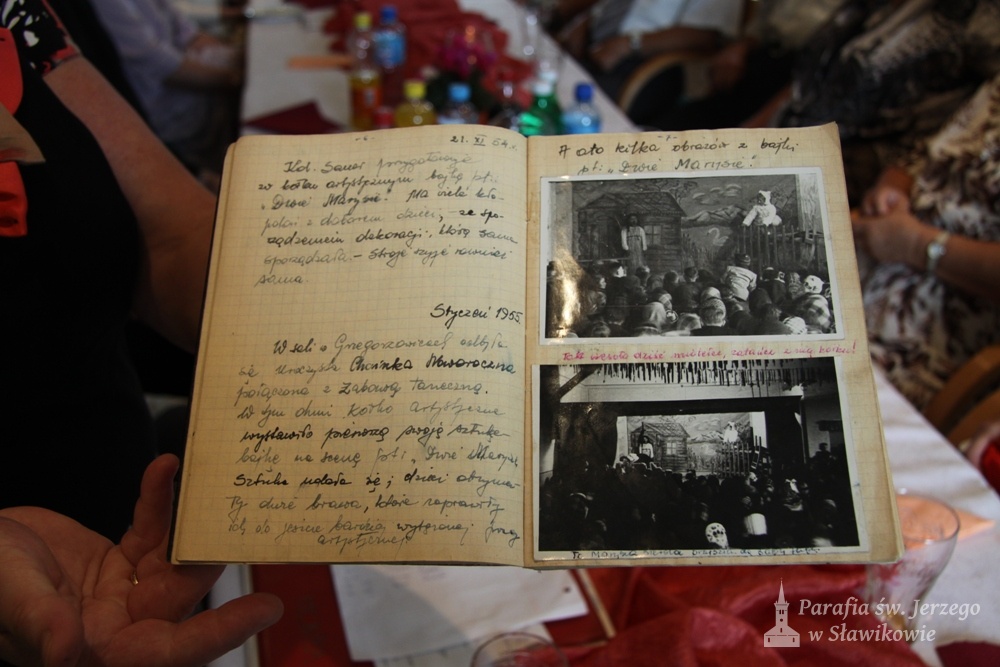 - 6 -
21. XI 54 r.
Kol. Sauer przygotowuje
w kółku artystycznym bajkę p.t.:
"Dwie Marysie". Ma wiele kło-
potów z doborem dzieci, ze spo-
rządzeniem dekoracji, którą sama
sporządzała. - Stroje szyje również
sama.
Styczeń 1955.
W sali w Grzegorzowicach odbyła
się uroczysta Choinka Noworoczna
połączona z zabawą taneczną.
W tym dniu kółko artystyczne
wystawiło pierwszą swoją sztukę
bajkę na scenę p.t.: "Dwie Marysie"
Sztuka udała się, dzieci otrzyma-
ły duże brawa, które zaprawiły
ich do jeszcze bardziej wytężonej pracy
artystycznej.
- 7 -
A oto kilka obrazów z bajki
pt: "Dwie Marysie".
Tak wesoło dziś
To Marysia
Parafia św. Jerzego
w Sławikowie